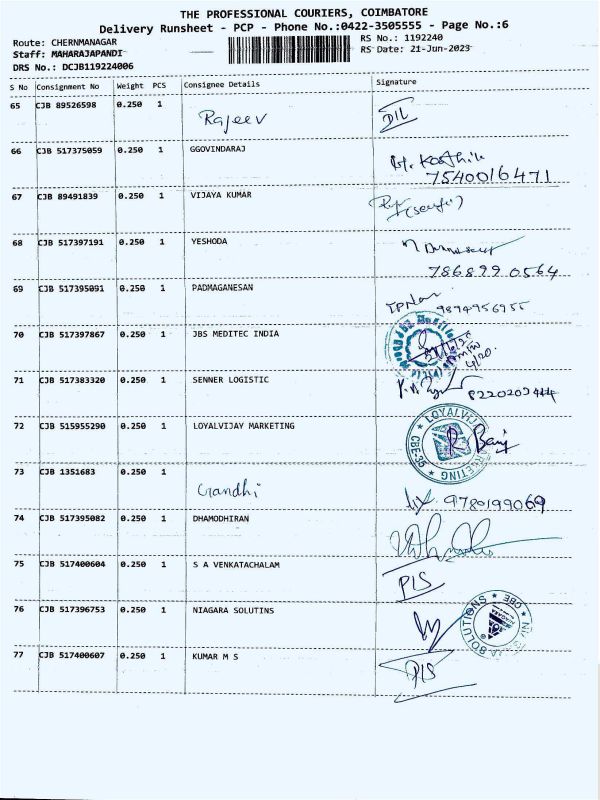 THE PROFESSIONAL COURIERS, COIMBATORE
Delivery Runsheet - PCP - Phone No.:0422-3505555 - Page No.:6
Route: CHERNMANAGAR
RS No.: 1192240
Staff: MAHARAJAPANDI
RS Date: 21-Jun-2023
DRS No.: DCJB119224006
S No Consignment No Weight PCS Consignee Details Signature
65 CJB 89526598 0.250 1
Rajeev
66 CJB 517375059 0.250 1 GGOVINDARAJ
7540016471
67 CJB 89491839 0.250 1 VIJAYA KUMAR
68 CJB 517397191 0.250 1 YESHODA
7868990564
69 CJB 517395091 0.250 1 PADMAGANESAN
9894956955
70 CJB 517397867 0.250 1 JBS MEDITEC INDIA
71 CJB 517383320 0.250 1 SENNER LOGISTIC
72 CJB 515955290 0.250 1 LOYALVIJAY MARKETING
LOYALVIJAY MARKETING
CBE-35
73 CJB 1351683 0.250 1
Gandhi
9780199069
74 CJB 517395082 0.250 1 DHAMODHIRAN
75 CJB 517400604 0.250 1 S A VENKATACHALAM
76 CJB 517396753 0.250 1 NIAGARA SOLUTINS
SOLUTIONS
CBE
77 CJB 517400607 0.250 1 KUMAR M S